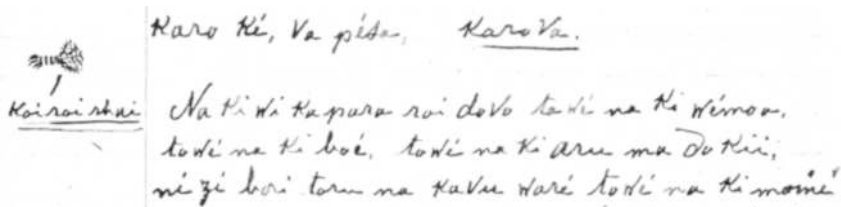 Karo Ki, Va pésa, KaroVa.
Kairai shai
Na Ki Wi Ka para rai doVo toWé na Ki Wémoa,
toWé na Ki boé, toWé na Ki aru ma Do Kii,
né zé bori toru na KaVu Waré toWé na Ki momé